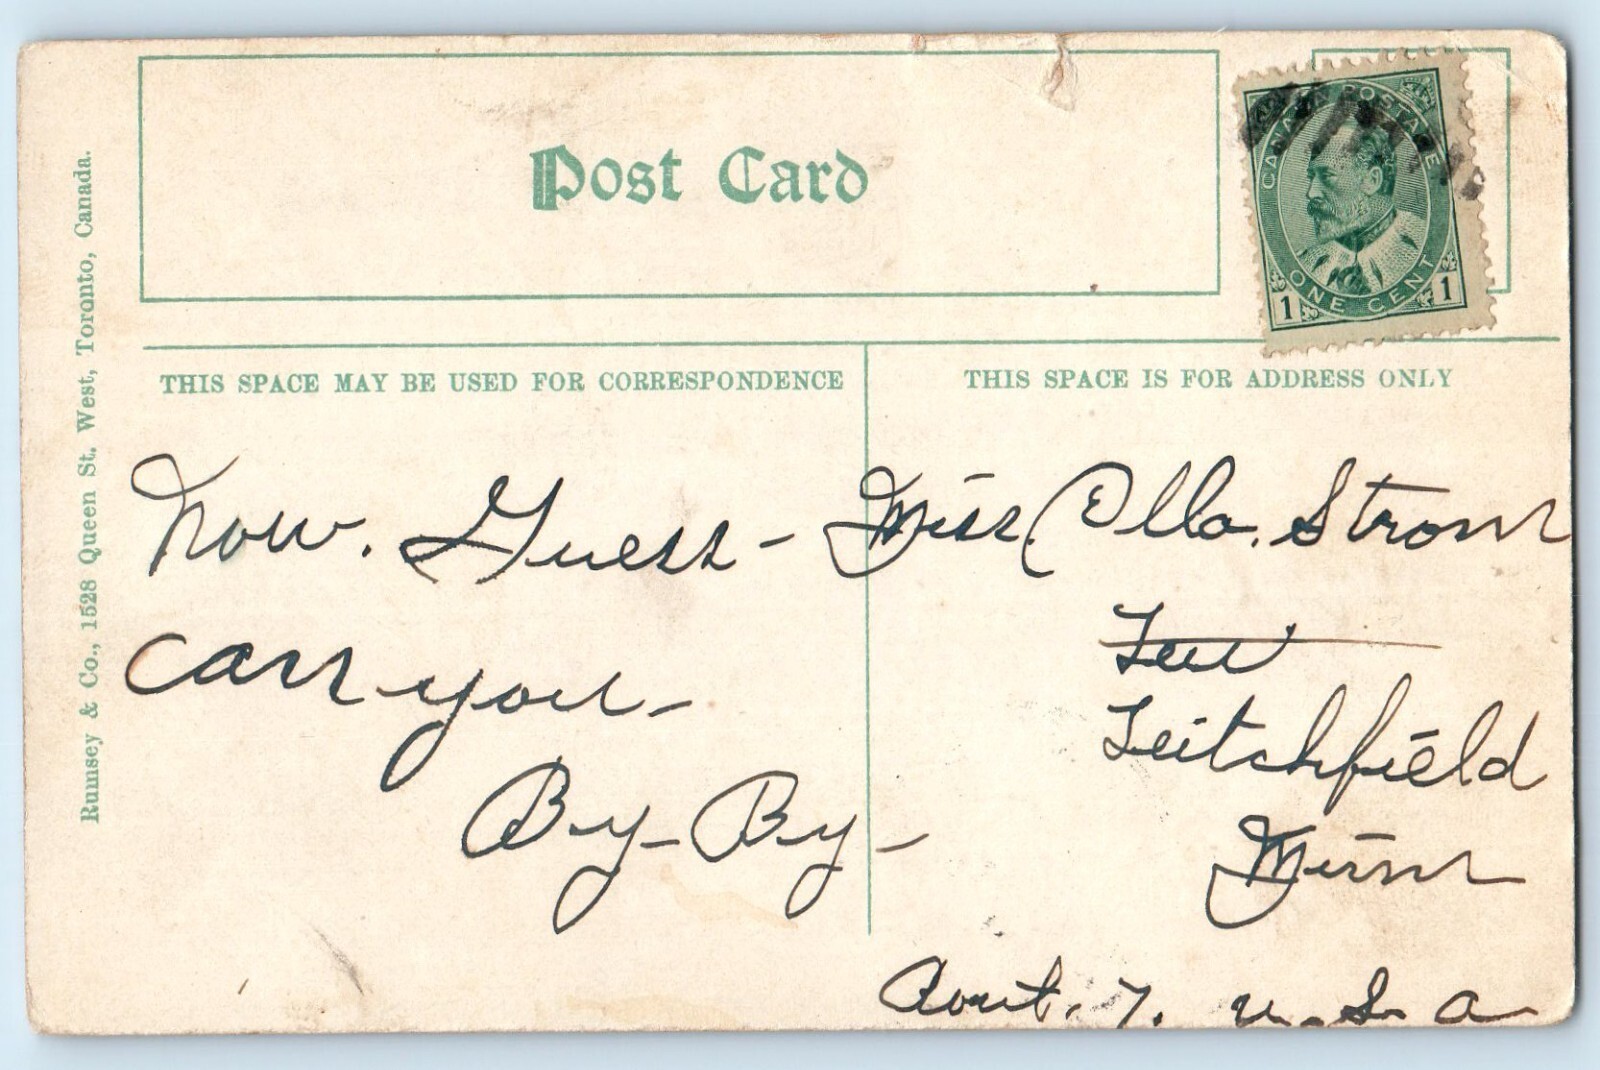 Post Card
CANADA POSTAGE
ONE CENT
1 1
Rumsey & Co., 1528 Queen St. West, Toronto, Canada.
THIS SPACE MAY BE USED FOR CORRESPONDENCE
THIS SPACE IS FOR ADDRESS ONLY
Now. Guess-
can you-
By-By-
Miss Ella. Strom
Leitchfield
Minn
Rout. 7. U.S.A